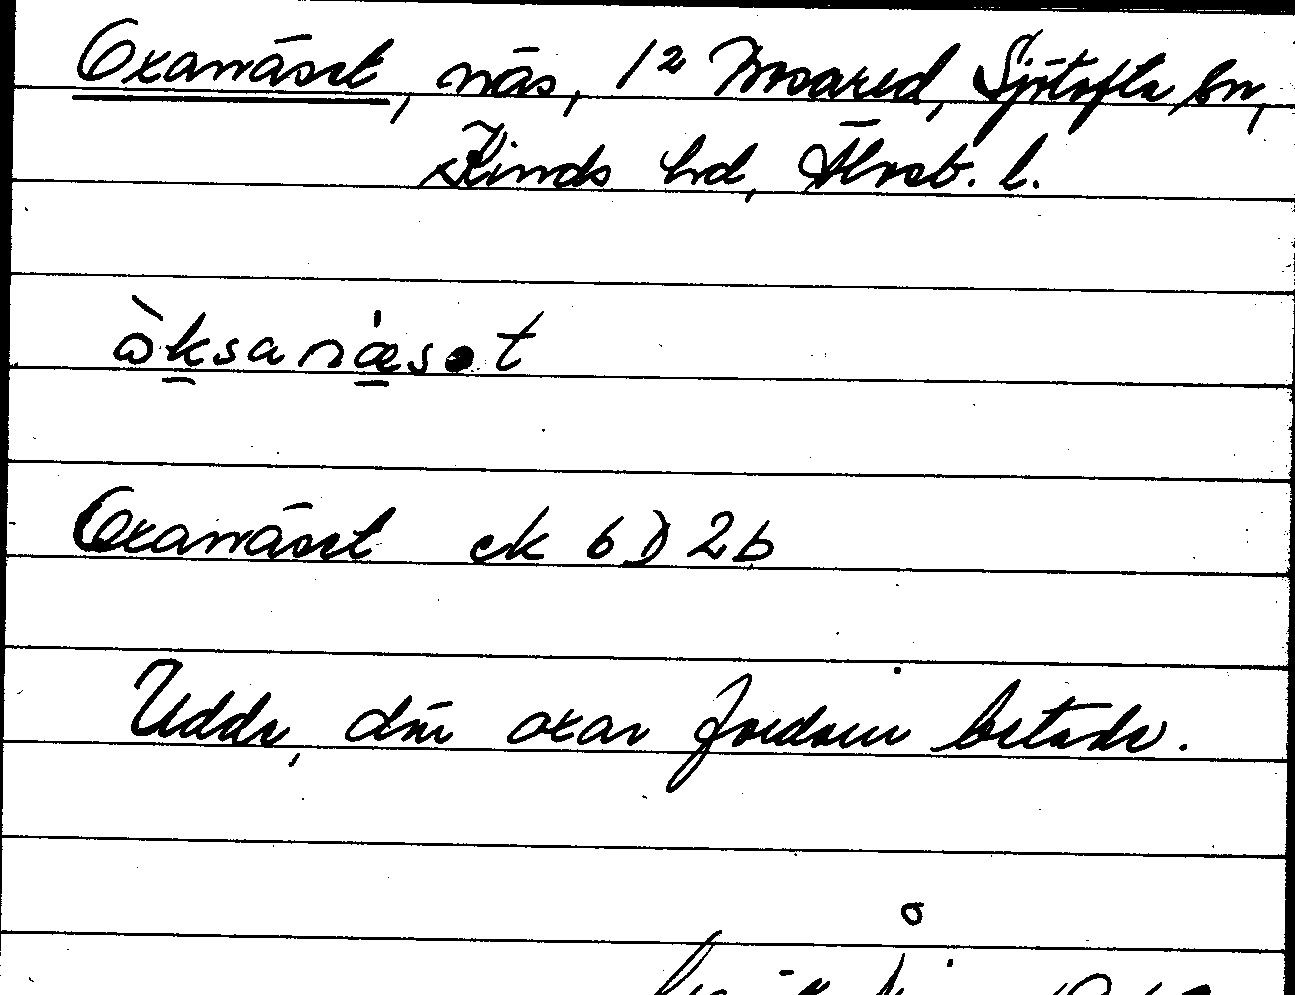 Oxanäset, näs, 1² Mosared, Sjötofta sn,
Kinds hd, Älvsb. l.
òksanæ̀sət
Oxanäset ek 6D2b
Udde, där oxar fordom betade.